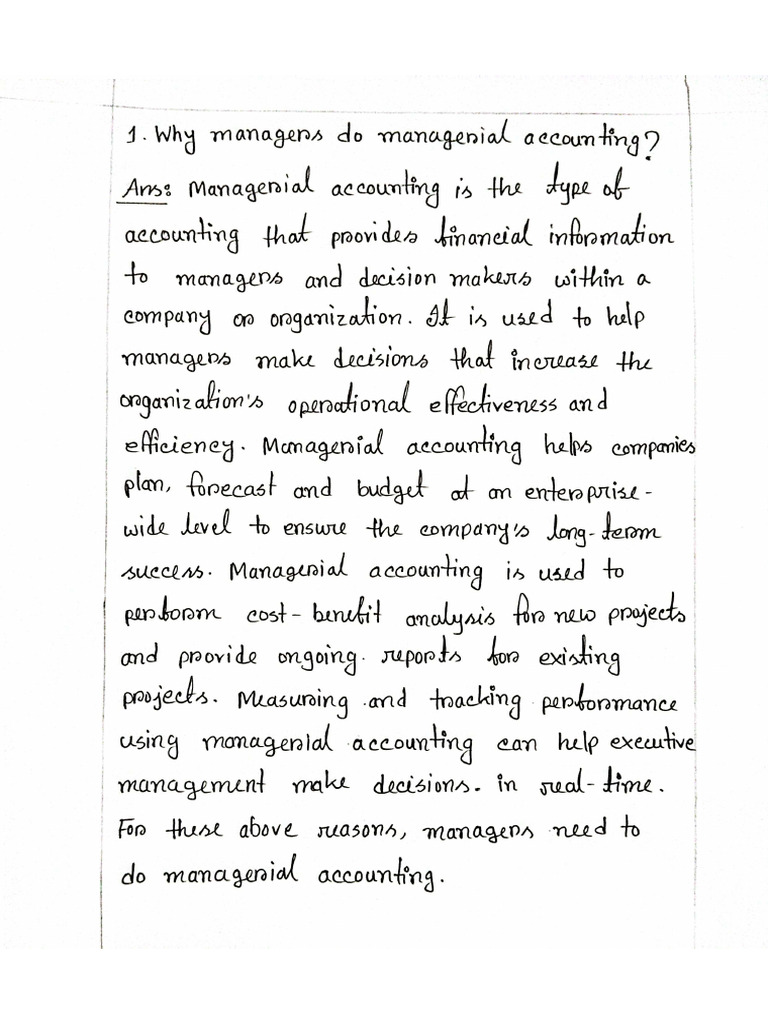 1. Why managers do managerial accounting?
Ans: Managerial accounting is the type of
accounting that provides financial information
to managers and decision makers within a
company or organization. It is used to help
managers make decisions that increase the
organization's operational effectiveness and
efficiency. Managerial accounting helps companies
plan, forecast and budget at an enterprise-
wide level to ensure the company's long-term
success. Managerial accounting is used to
perform cost-benefit analysis for new projects
and provide ongoing. reports for existing
projects. Measuring and tracking performance
using managerial accounting can help executive
management make decisions. in real-time.
For these above reasons, managers need to
do managerial accounting.